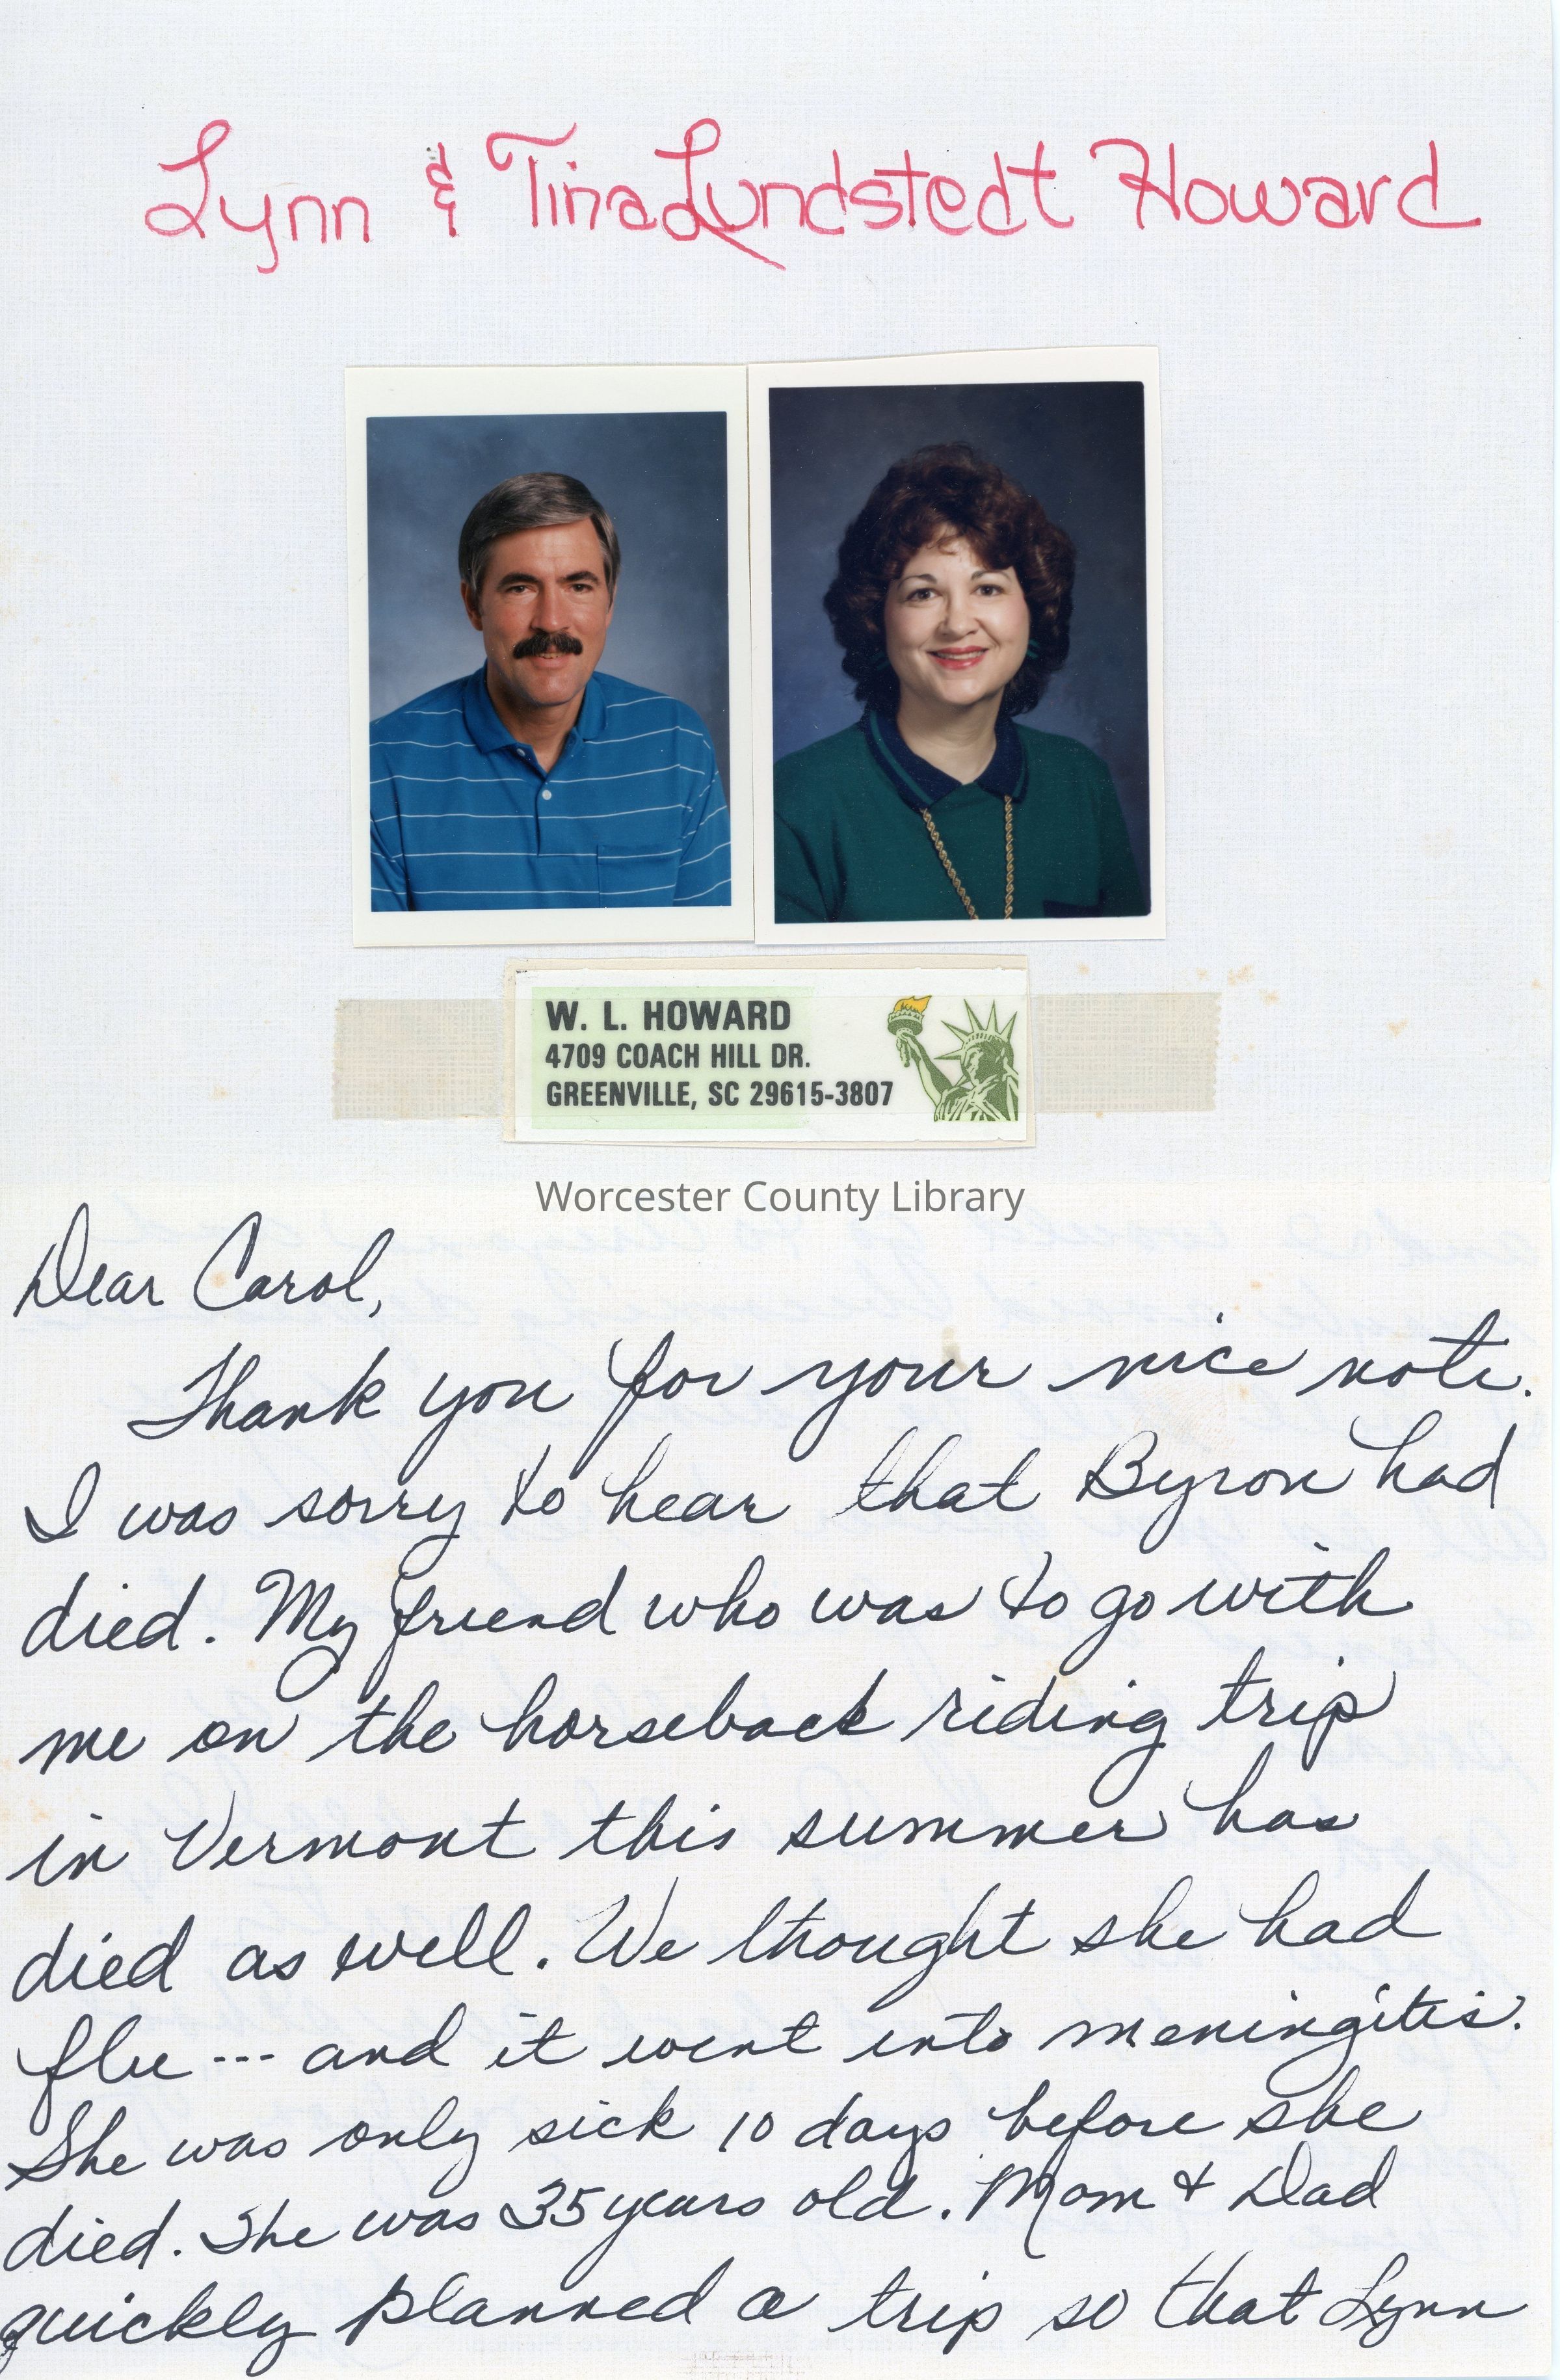 Lynn & Tina Lundstedt Howard
W. L. HOWARD
4709 COACH HILL DR.
GREENVILLE, SC 29615-3807
Worcester County Library
Dear Carol,
Thank you for your nice note.
I was sorry to hear that Byron had
died. My friend who was to go with
me on the horseback riding trip
in Vermont this summer has
died as well. We thought she had
flu --- and it went into meningitis.
She was only sick 10 days before she
died. She was 35 years old. Mom & Dad
quickly planned a trip so that Lynn